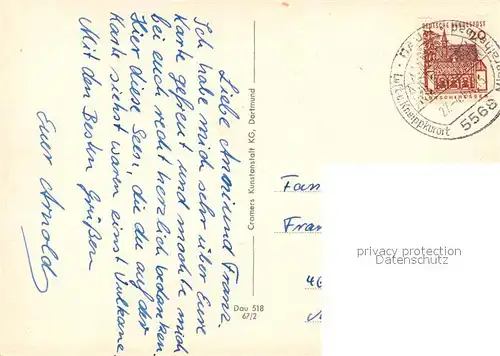 Liebe Änni und Franz.
Ich habe mich sehr über Eure
Karte gefreut und möchte mich
bei euch recht herzlich bedanken.
Hier diese Seen, die du auf der
Karte siehst waren einst Vulkane.
Mit den Besten Grüßen
Euer Arnold
Cramers Kunstanstalt KG, Dortmund
Dau 518
67/2
DEUTSCHE BUNDESPOST
DAUN
Luft u. Kneippkurort
5568
Fam
Fran
46
privacy protection
watermark